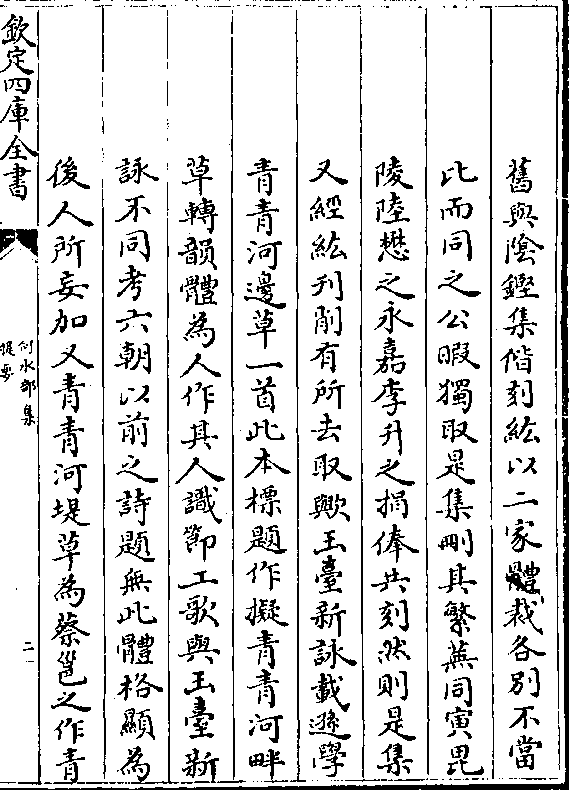 舊與陰鏗集偕刻紘以二家體裁各別不當
比而同之公暇獨取是集刪其繁蕪同寅毘
陵陸懋之永嘉李升之捐俸共刻然則是集
又經紘刋削有所去取歟玉臺新詠載遜學
青青河邊草一首此本標題作擬青青河畔
草轉韻體為人作其人識節工歌與玉臺新
詠不同考六朝以前之詩題無此體格顯為
後人所妄加又青青河堤草為蔡邕之作青
欽定四庫全書
何水部集
提要
二